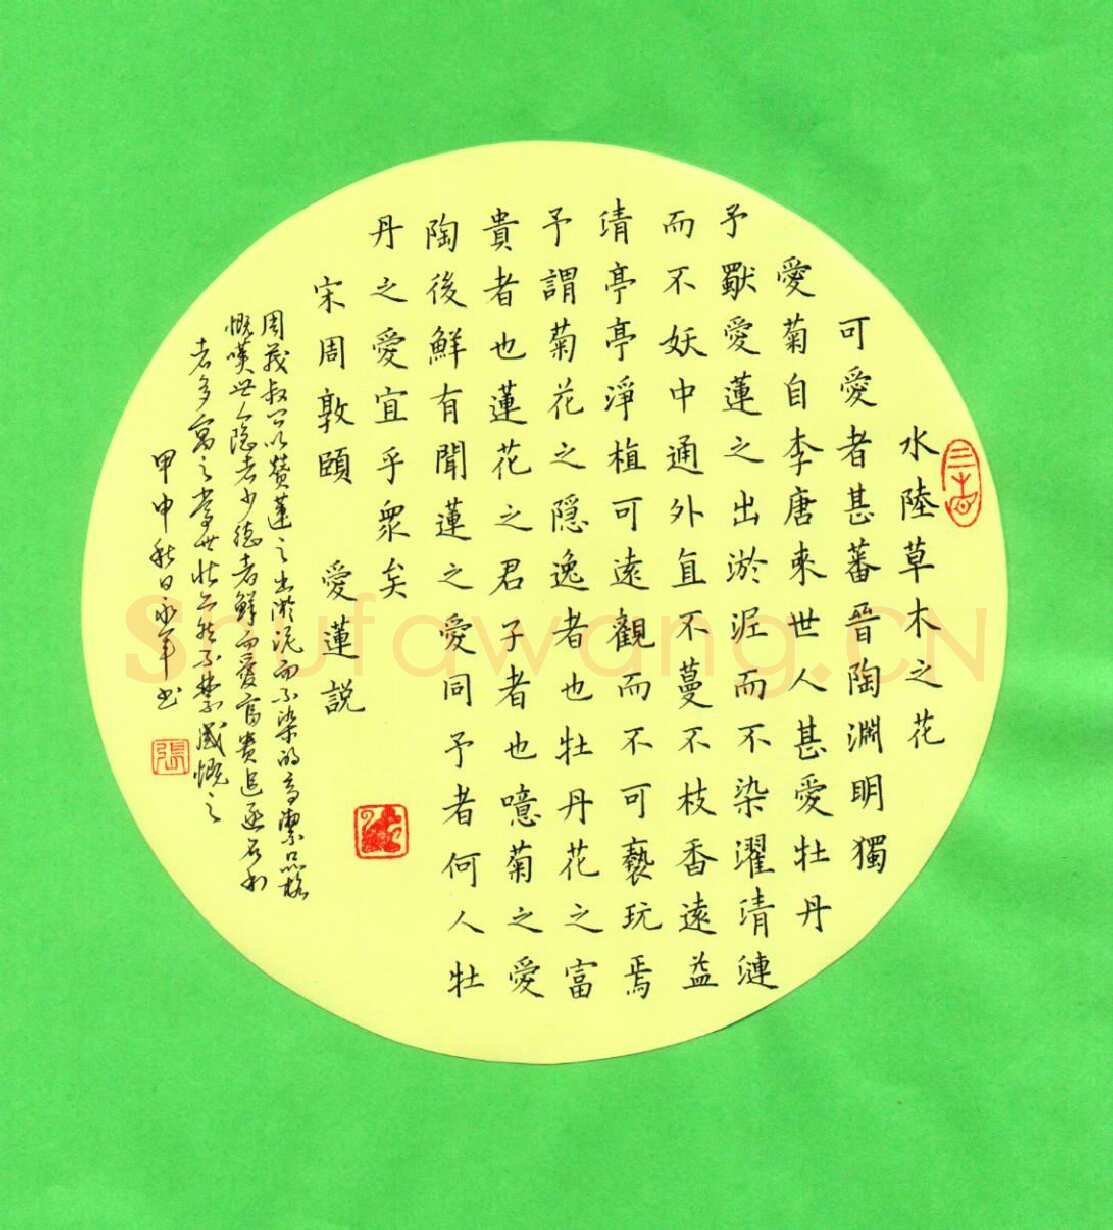 水陸草木之花
可愛者甚蕃晉陶淵明獨
愛菊自李唐來世人甚愛牡丹
予獣愛蓮之出淤泥而不染濯清漣
而不妖中通外直不蔓不枝香遠益
清亭亭淨植可遠觀而不可褻玩焉
予謂菊花之隱逸者也牡丹花之富
貴者也蓮花之君子者也噫菊之愛
陶後鮮有聞蓮之愛同予者何人牡
丹之愛宜乎衆矣
宋周敦頤 愛蓮説
周茂叔公以贊蓮之出淤泥而不染的高潔品格
慨嘆世人隐者少德者鮮而愛富貴追逐名利
者多寫之當世能不禁感慨之
甲申秋日永年书
張
Shufawang.CN